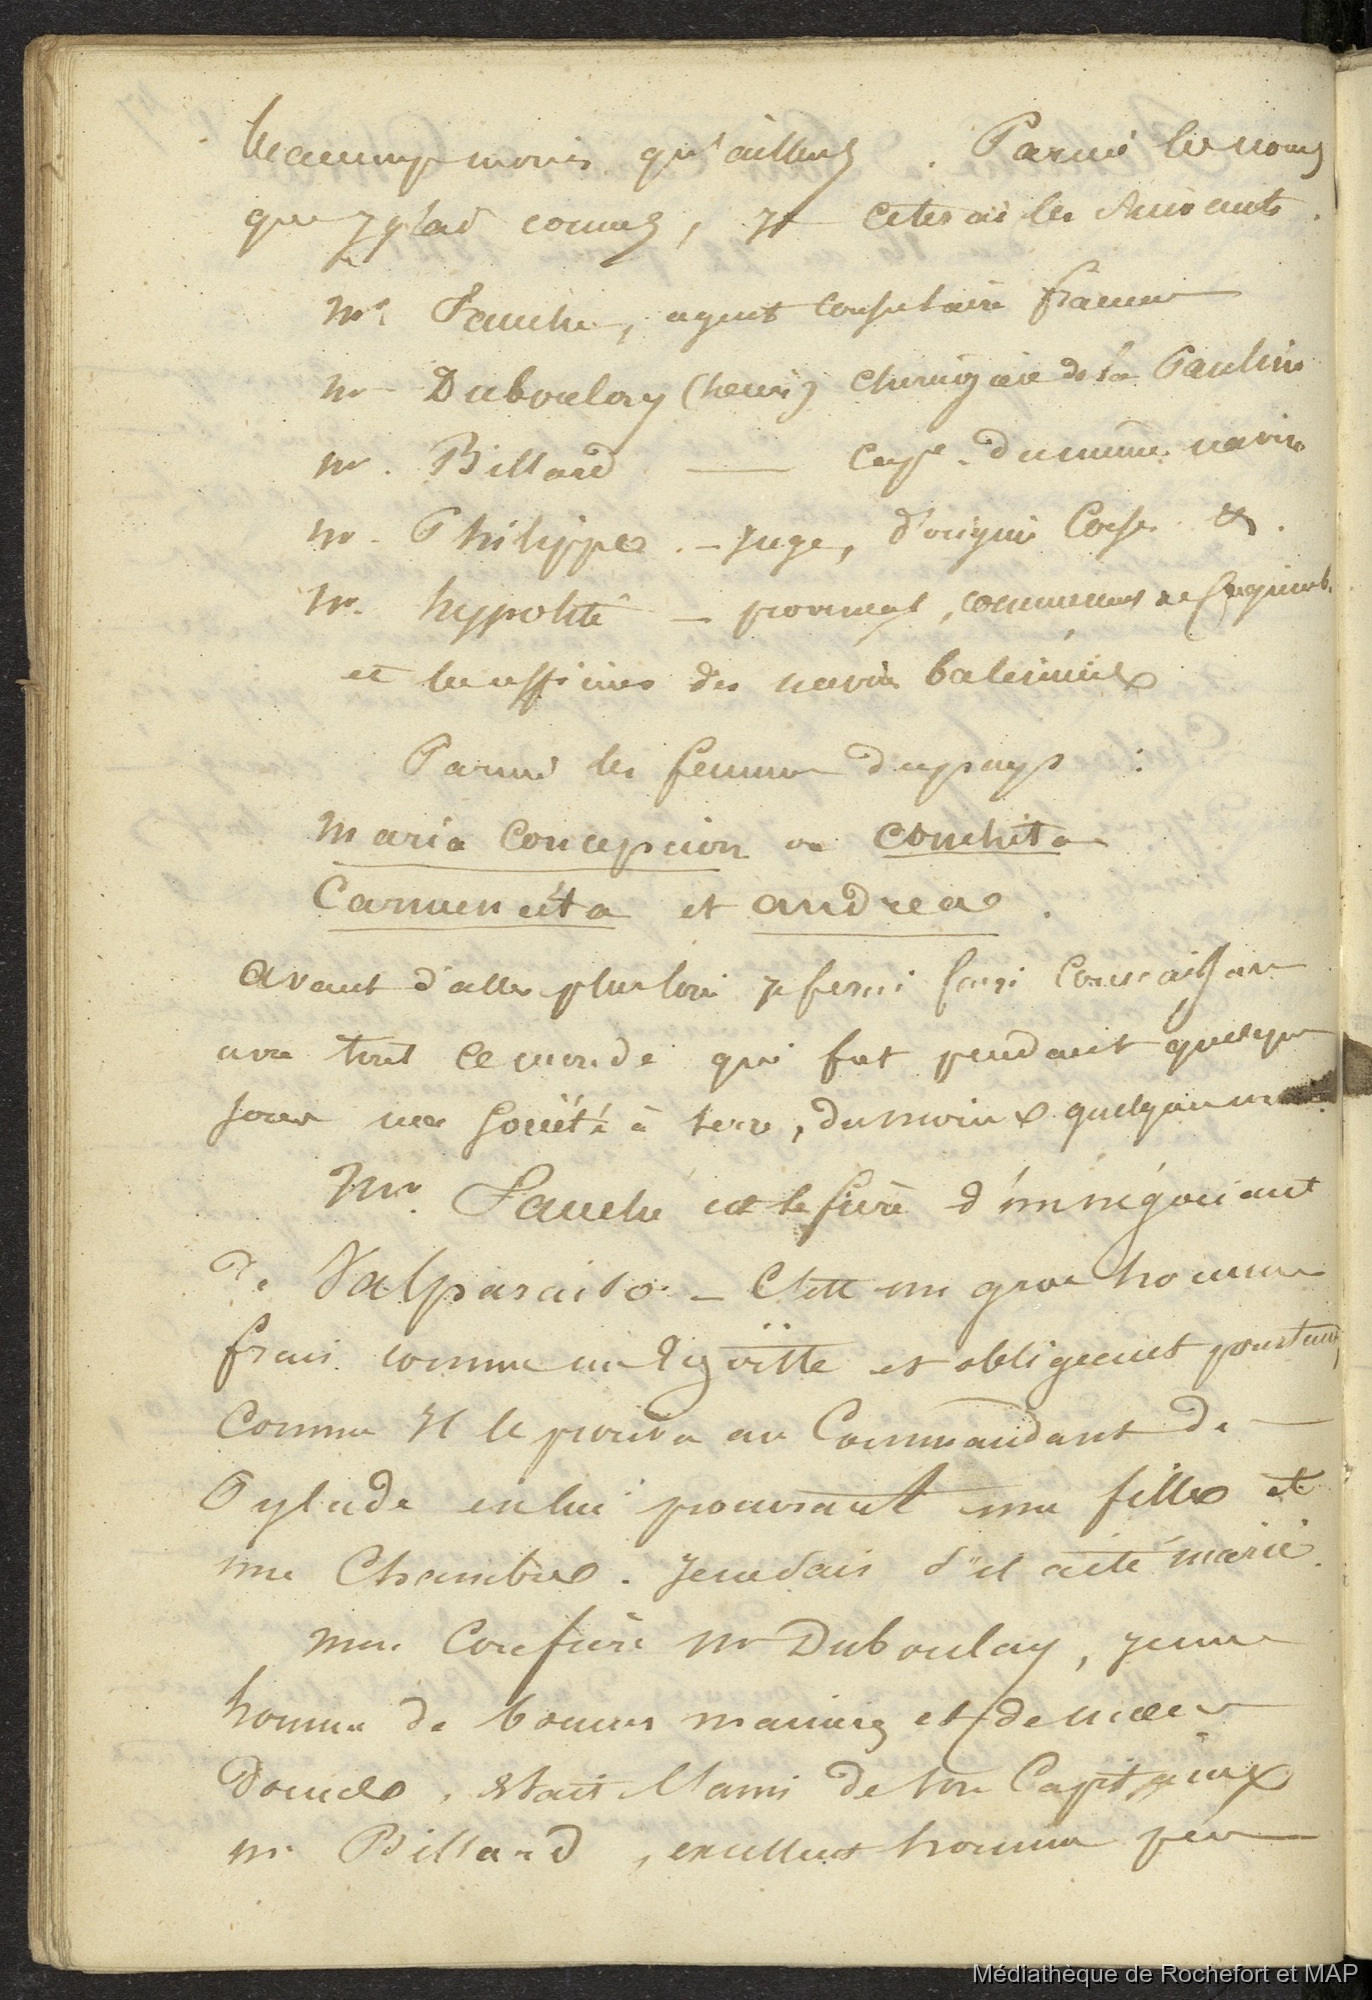 beaucoup moins qu'ailleurs. Parmi les noms
que j'y ai connus, je citerai les suivants.
Mr. Fauche, agent consulaire français
Mr Duboulay (henri) chirurgien de la Pauline
Mr. Billard — cape. du même navire
Mr. Philippe. — juge, d'origine Corse &.
Mr. hyppolite —
et les officiers des navires baleiniers
Parmi les femmes du pays :
Maria Concepcion ou Conchita
Carmencita et andrea.
avant d'aller plus loin je ferai faire connaissance
avec tout ce monde qui fut pendant quelques
jours ma société à terre, du moins quelques uns
Mr. Fauche est le frère d'un négociant
de Valparaiso. — C'est un gros homme
frais comme un et obligeant pourtant,
comme il le prouva au Commandant de
Pylade en lui procurant une fille et
une Chambre. Je ne sais s'il a été marié.
Mon Confrère Mr Duboulay, jeune
homme de bonnes manières et de mœurs
douces, était l'ami de son Capitaine
Mr Billard, excellent homme peu
Médiathèque de Rochefort et MAP